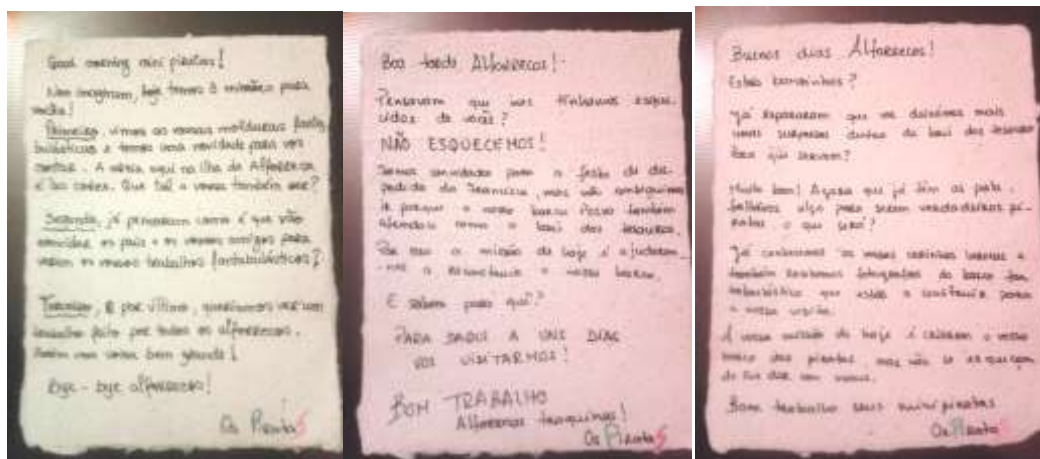 Good morning mini piratas!
Nem imaginam, hoje temos a missão para
vocês!
Primeiro, vimos as vossas molduras fanta
bulásticas e temos uma novidade para vos
contar. A nossa aqui na ilha da Alforreca
é às cores. Que tal a vossa também ser?
Segundo, já pensaram como é que vão
convidar os pais e os vossos amigos para
verem os vossos trabalhos fantabulásticos?
Terceiro, e por último, queríamos ver um
trabalho feito por todos os alforrecas.
bem grande!
Bye - bye alforrecas!
Os Piratas
Boa tarde Alforrecas!
Pensavam que nos tínhamos esque-
cidos de vocês?
NÃO ESQUECEMOS!
Fomos convidados para a festa de des-
pedida da Francisca, mas não conseguimos
ir porque o nosso barco também
afundou como o baú dos tesouros.
Por isso a missão de hoje é ajudarem
-nos a reconstruir o nosso barco.
E sabem para quê?
PARA DAQUI A UNS DIAS
VOS VISITARMOS!
BOM TRABALHO
Alforrecas traquinas!
Os Piratas
Buenos dias Alforrecas!
Estão bonzinhos?
Já repararam que vos deixámos mais
umas surpresas dentro do baú dos tesouros
Para que servem?
Muito bem! Agora que já têm as pala,
falta-vos algo para serem verdadeiros pi-
ratas o que será?
Já conhecemos as vossas
também recebemos fotografias do barco fan
tabulástico que estão a construir para
a nossa visita.
A vossa missão de hoje é o vosso
barco dos piratas mas não se esqueçam
de lhe dar um nome.
Bom trabalho seus mini piratas
Os Piratas